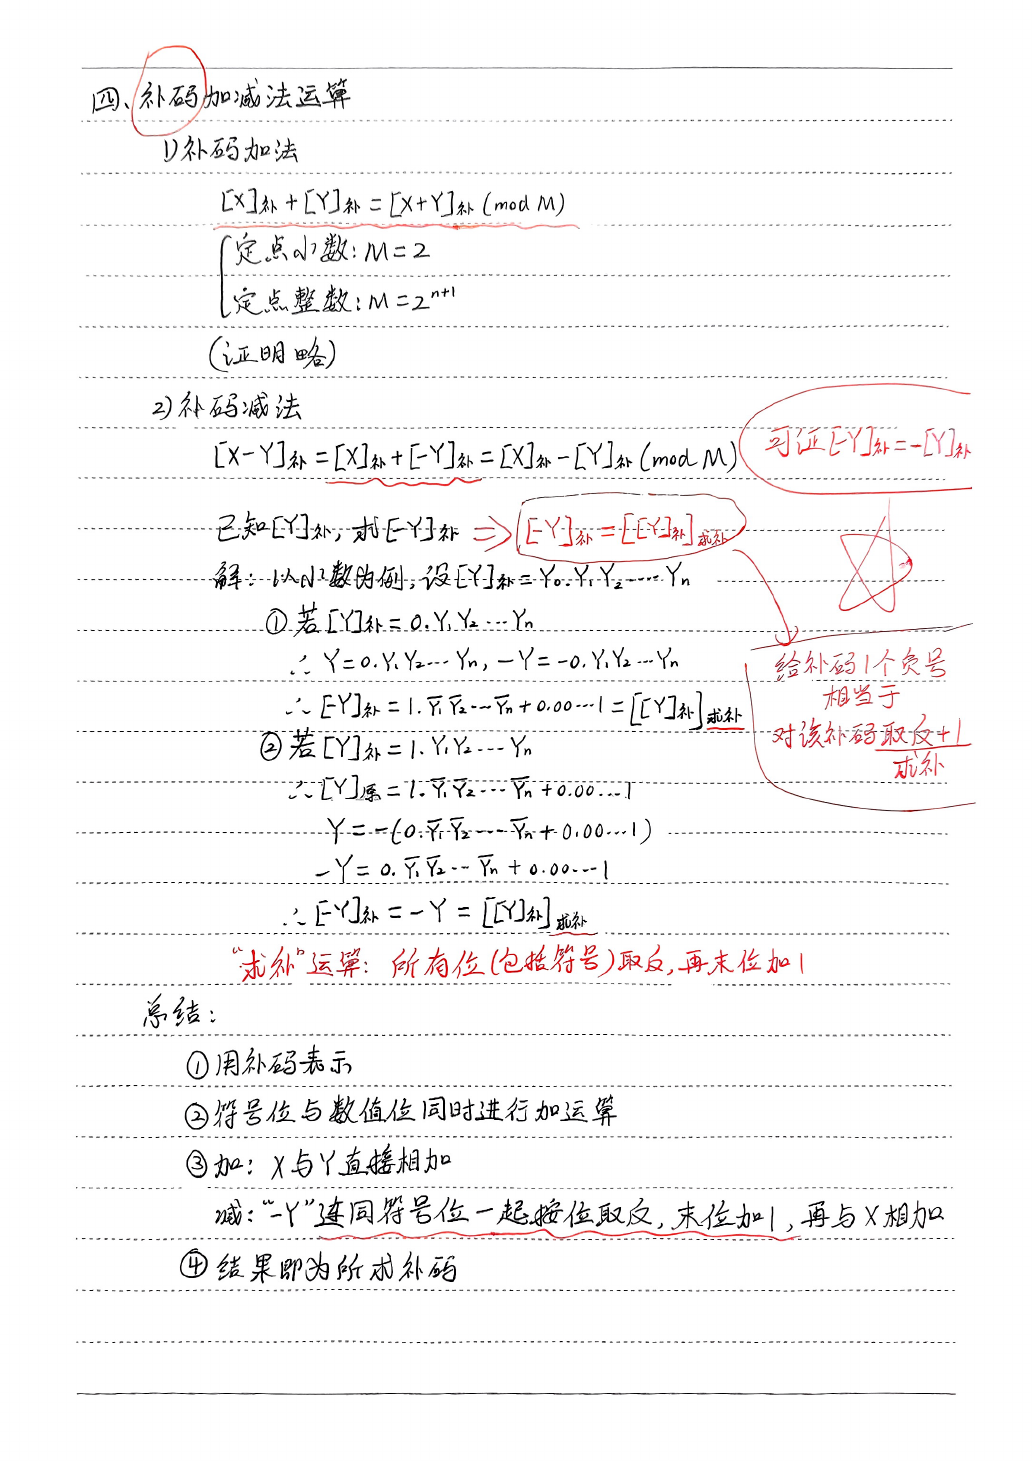 四、补码加减法运算
1)补码加法
[X]补+[Y]补=[X+Y]补(mod M)
定点小数:M=2
定点整数:M=2ⁿ⁺¹
(证明略)
2)补码减法
[X-Y]补=[X]补+[-Y]补=[X]补-[Y]补(mod M)
可证[-Y]补=-[Y]补
已知[Y]补,求[-Y]补 ⇒ [-Y]补=[[Y]补]求补
解:以小数为例,设[Y]补=Y₀.Y₁Y₂……Yn
①若[Y]补=0.Y₁Y₂…Yn
∴Y=0.Y₁Y₂…Yn,-Y=-0.Y₁Y₂…Yn
∴[-Y]补=1.Ȳ₁Ȳ₂…Ȳn+0.00…1=[[Y]补]求补
给补码1个负号
相当于
对该补码取反+1
求补
②若[Y]补=1.Y₁Y₂…Yn
∴[Y]原=1.Ȳ₁Ȳ₂…Ȳn+0.00…1
Y=-(0.Ȳ₁Ȳ₂…Ȳn+0.00…1)
-Y=0.Ȳ₁Ȳ₂…Ȳn+0.00…1
∴[-Y]补=-Y=[[Y]补]求补
“求补”运算:所有位(包括符号)取反,再末位加1
总结:
①用补码表示
②符号位与数值位同时进行加运算
③加:X与Y直接相加
减:“-Y”连同符号位一起按位取反,末位加1,再与X相加
④结果即为所求补码